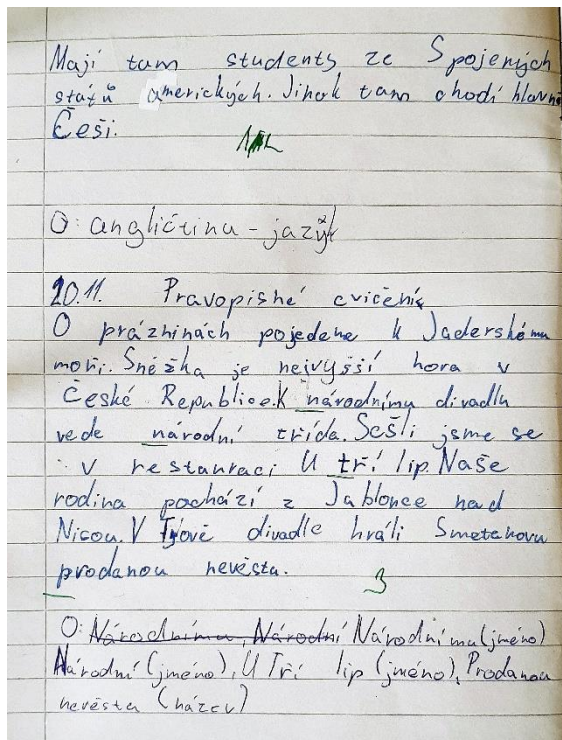 Mají tam students ze Spojených
států amerických. Jinak tam chodí hlavně
Češi.
O: angličtinu - jazyk
20.11. Pravopisné cvičení
O prázninách pojedeme k Jaderskému
moři. Sněžka je nejvyšší hora v
České Republice. K národnímu divadlu
vede národní třída. Sešli jsme se
v restauraci U tří lip. Naše
rodina pochází z Jablonce nad
Nisou. V Tylově divadle hráli Smetanovu
prodanou nevěsta.
3
O: Národnímu, Národní Národnímu (jméno)
Národní (jméno), U Tří lip (jméno), Prodanou
nevěsta (název)